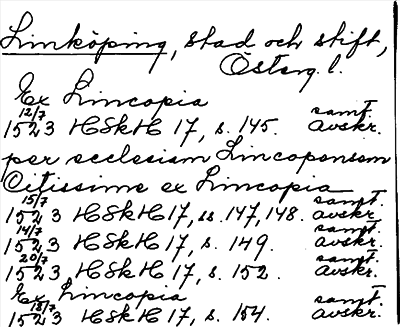 Linköping, stad och stift,
Österg. l.
Ex Lincopia
12/7 1523 HSkH 17, s. 145. samt. avskr.
per ecclesiam Lincopensem
Citissime ex Lincopia
15/7 1523 HSkH 17, ss. 147, 148. samt. avskr.
14/7 1523 HSkH 17, s. 149. samt. avskr.
20/7 1523 HSkH 17, s. 152. samt. avskr.
Ex Lincopia
18/7 1523 HSkH 17, s. 154. samt. avskr.